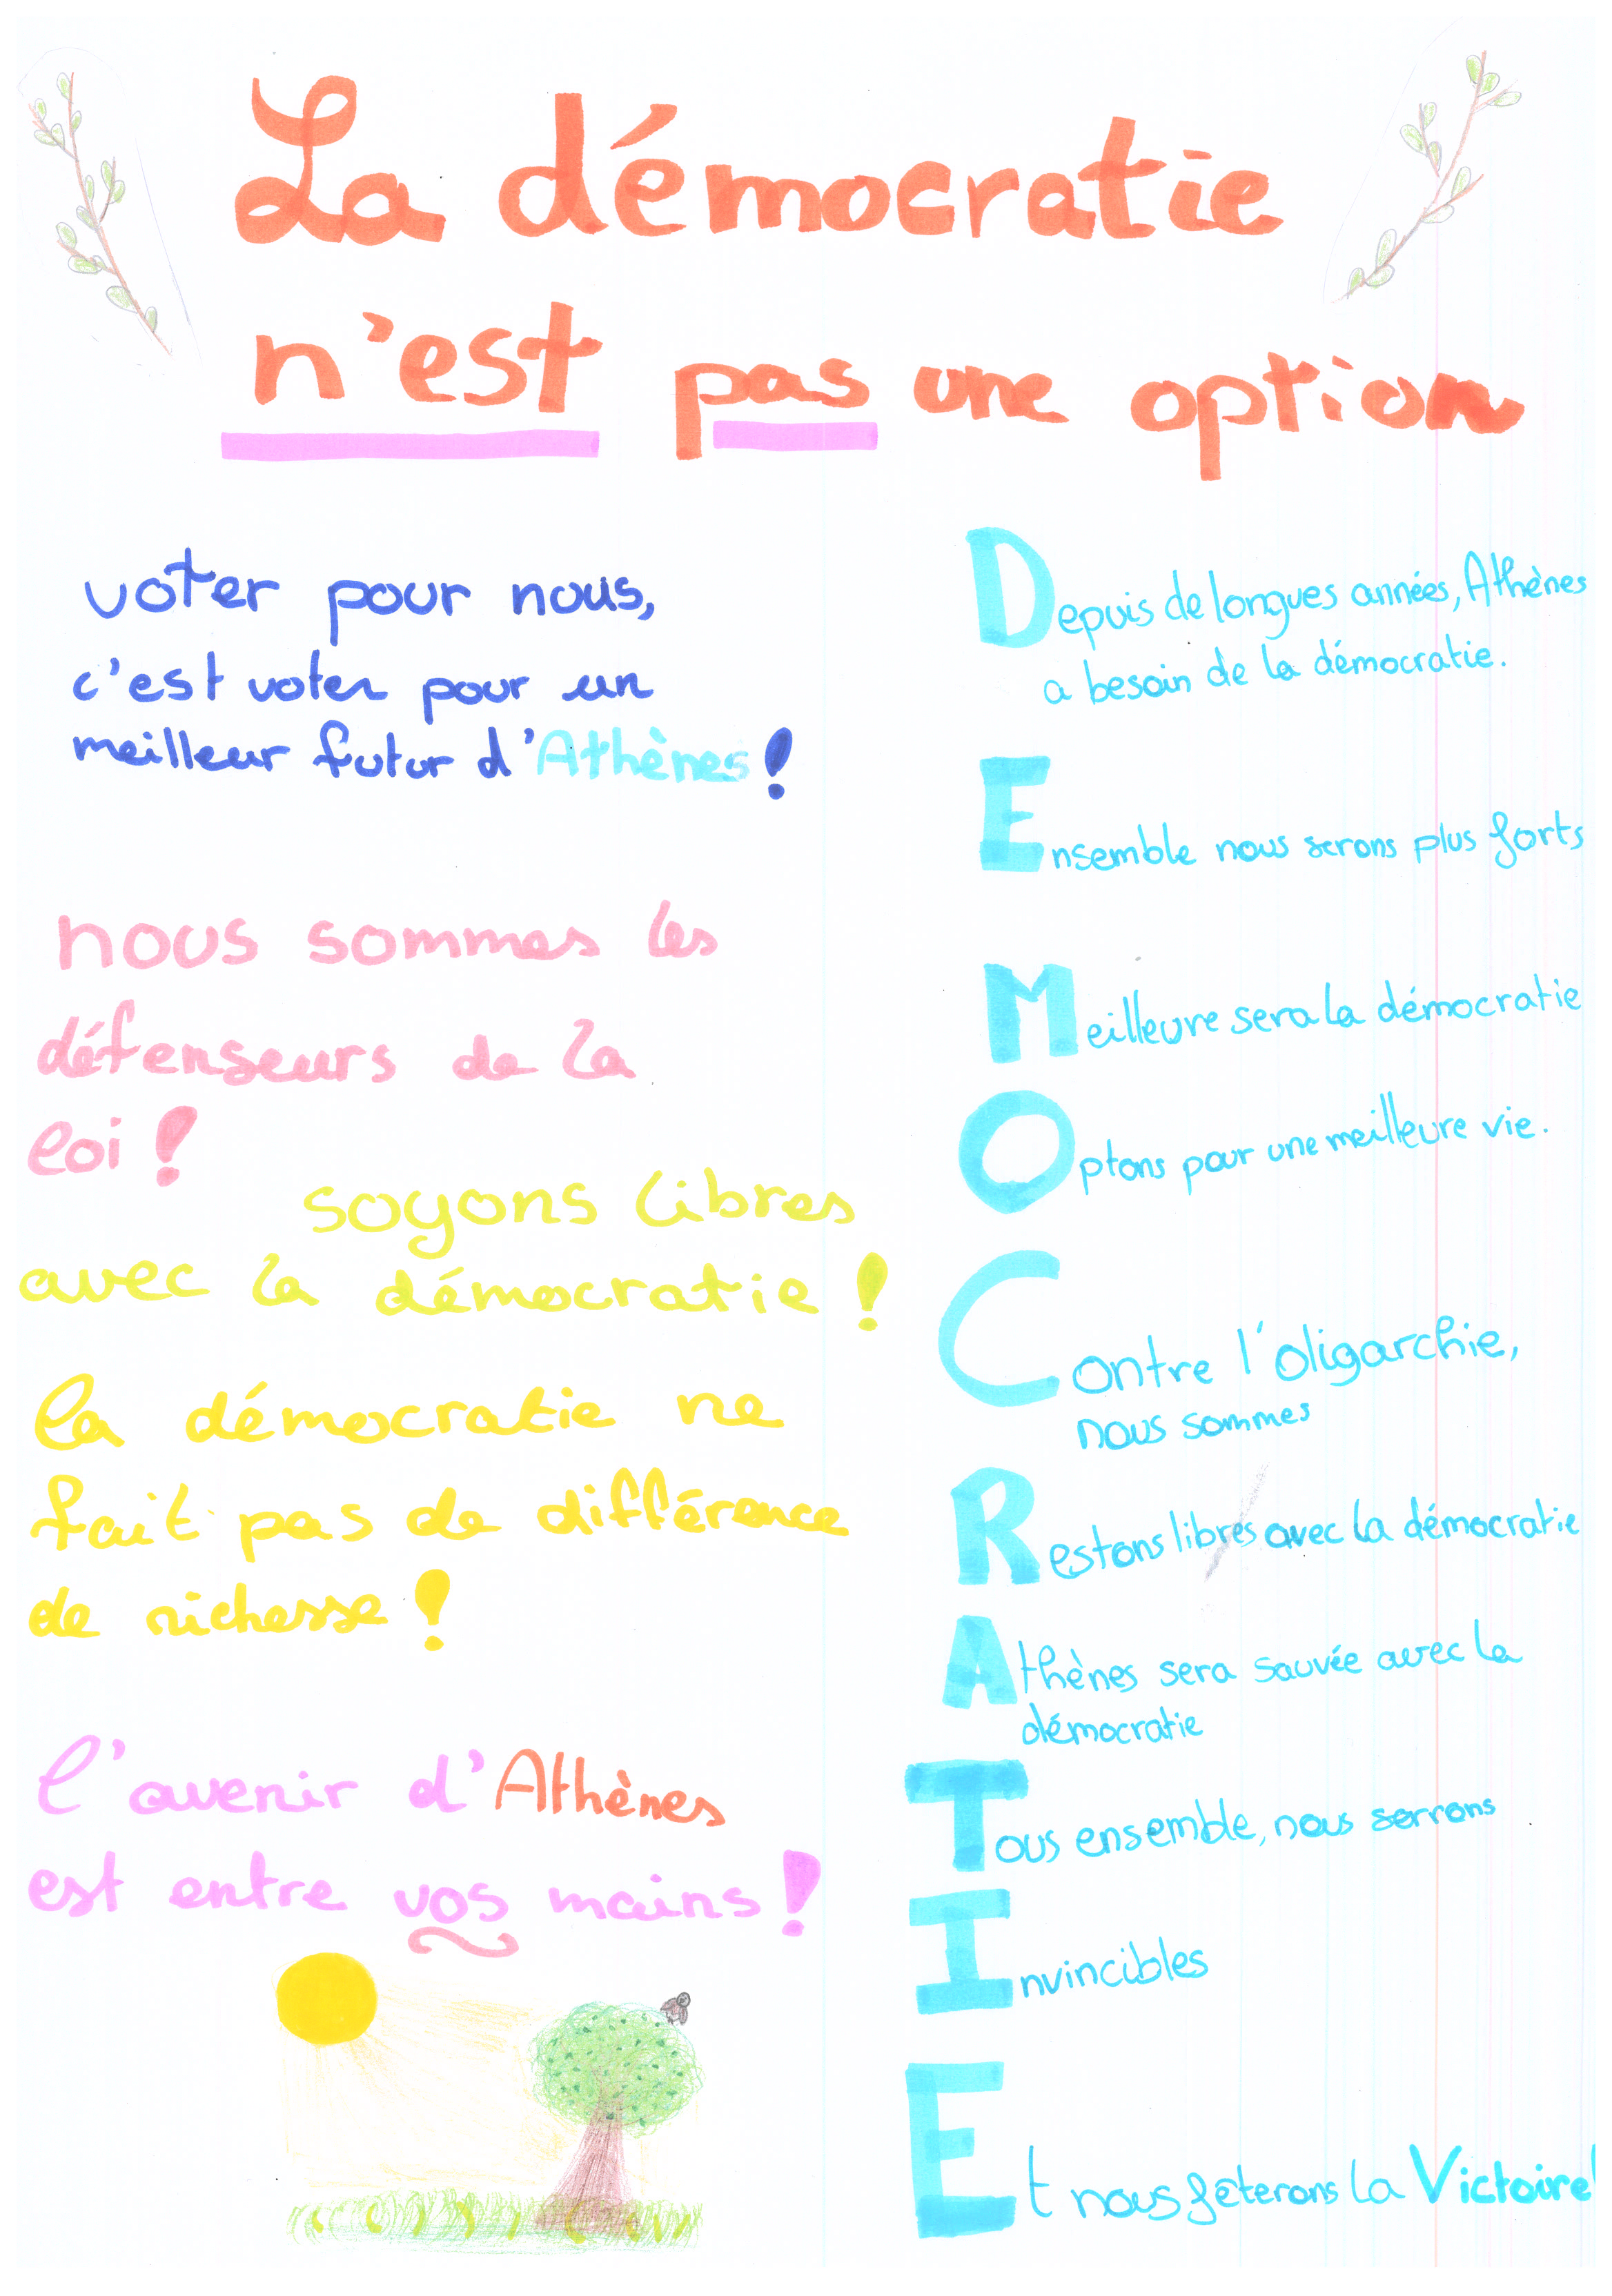 La démocratie
n'est pas une option
voter pour nous,
c'est voter pour un
meilleur futur d'Athènes !
nous sommes les
défenseurs de la
loi !
soyons libres
avec la démocratie !
la démocratie ne
fait pas de différence
de richesse !
l'avenir d'Athènes
est entre vos mains !
Depuis de longues années, Athènes
a besoin de la démocratie.
Ensemble nous serons plus forts
Meilleure sera la démocratie
Optons pour une meilleure vie.
Contre l'oligarchie,
nous sommes
Restons libres avec la démocratie
Athènes sera sauvée avec la
démocratie
Tous ensemble, nous serrons
Invincibles
Et nous fêterons la Victoire!